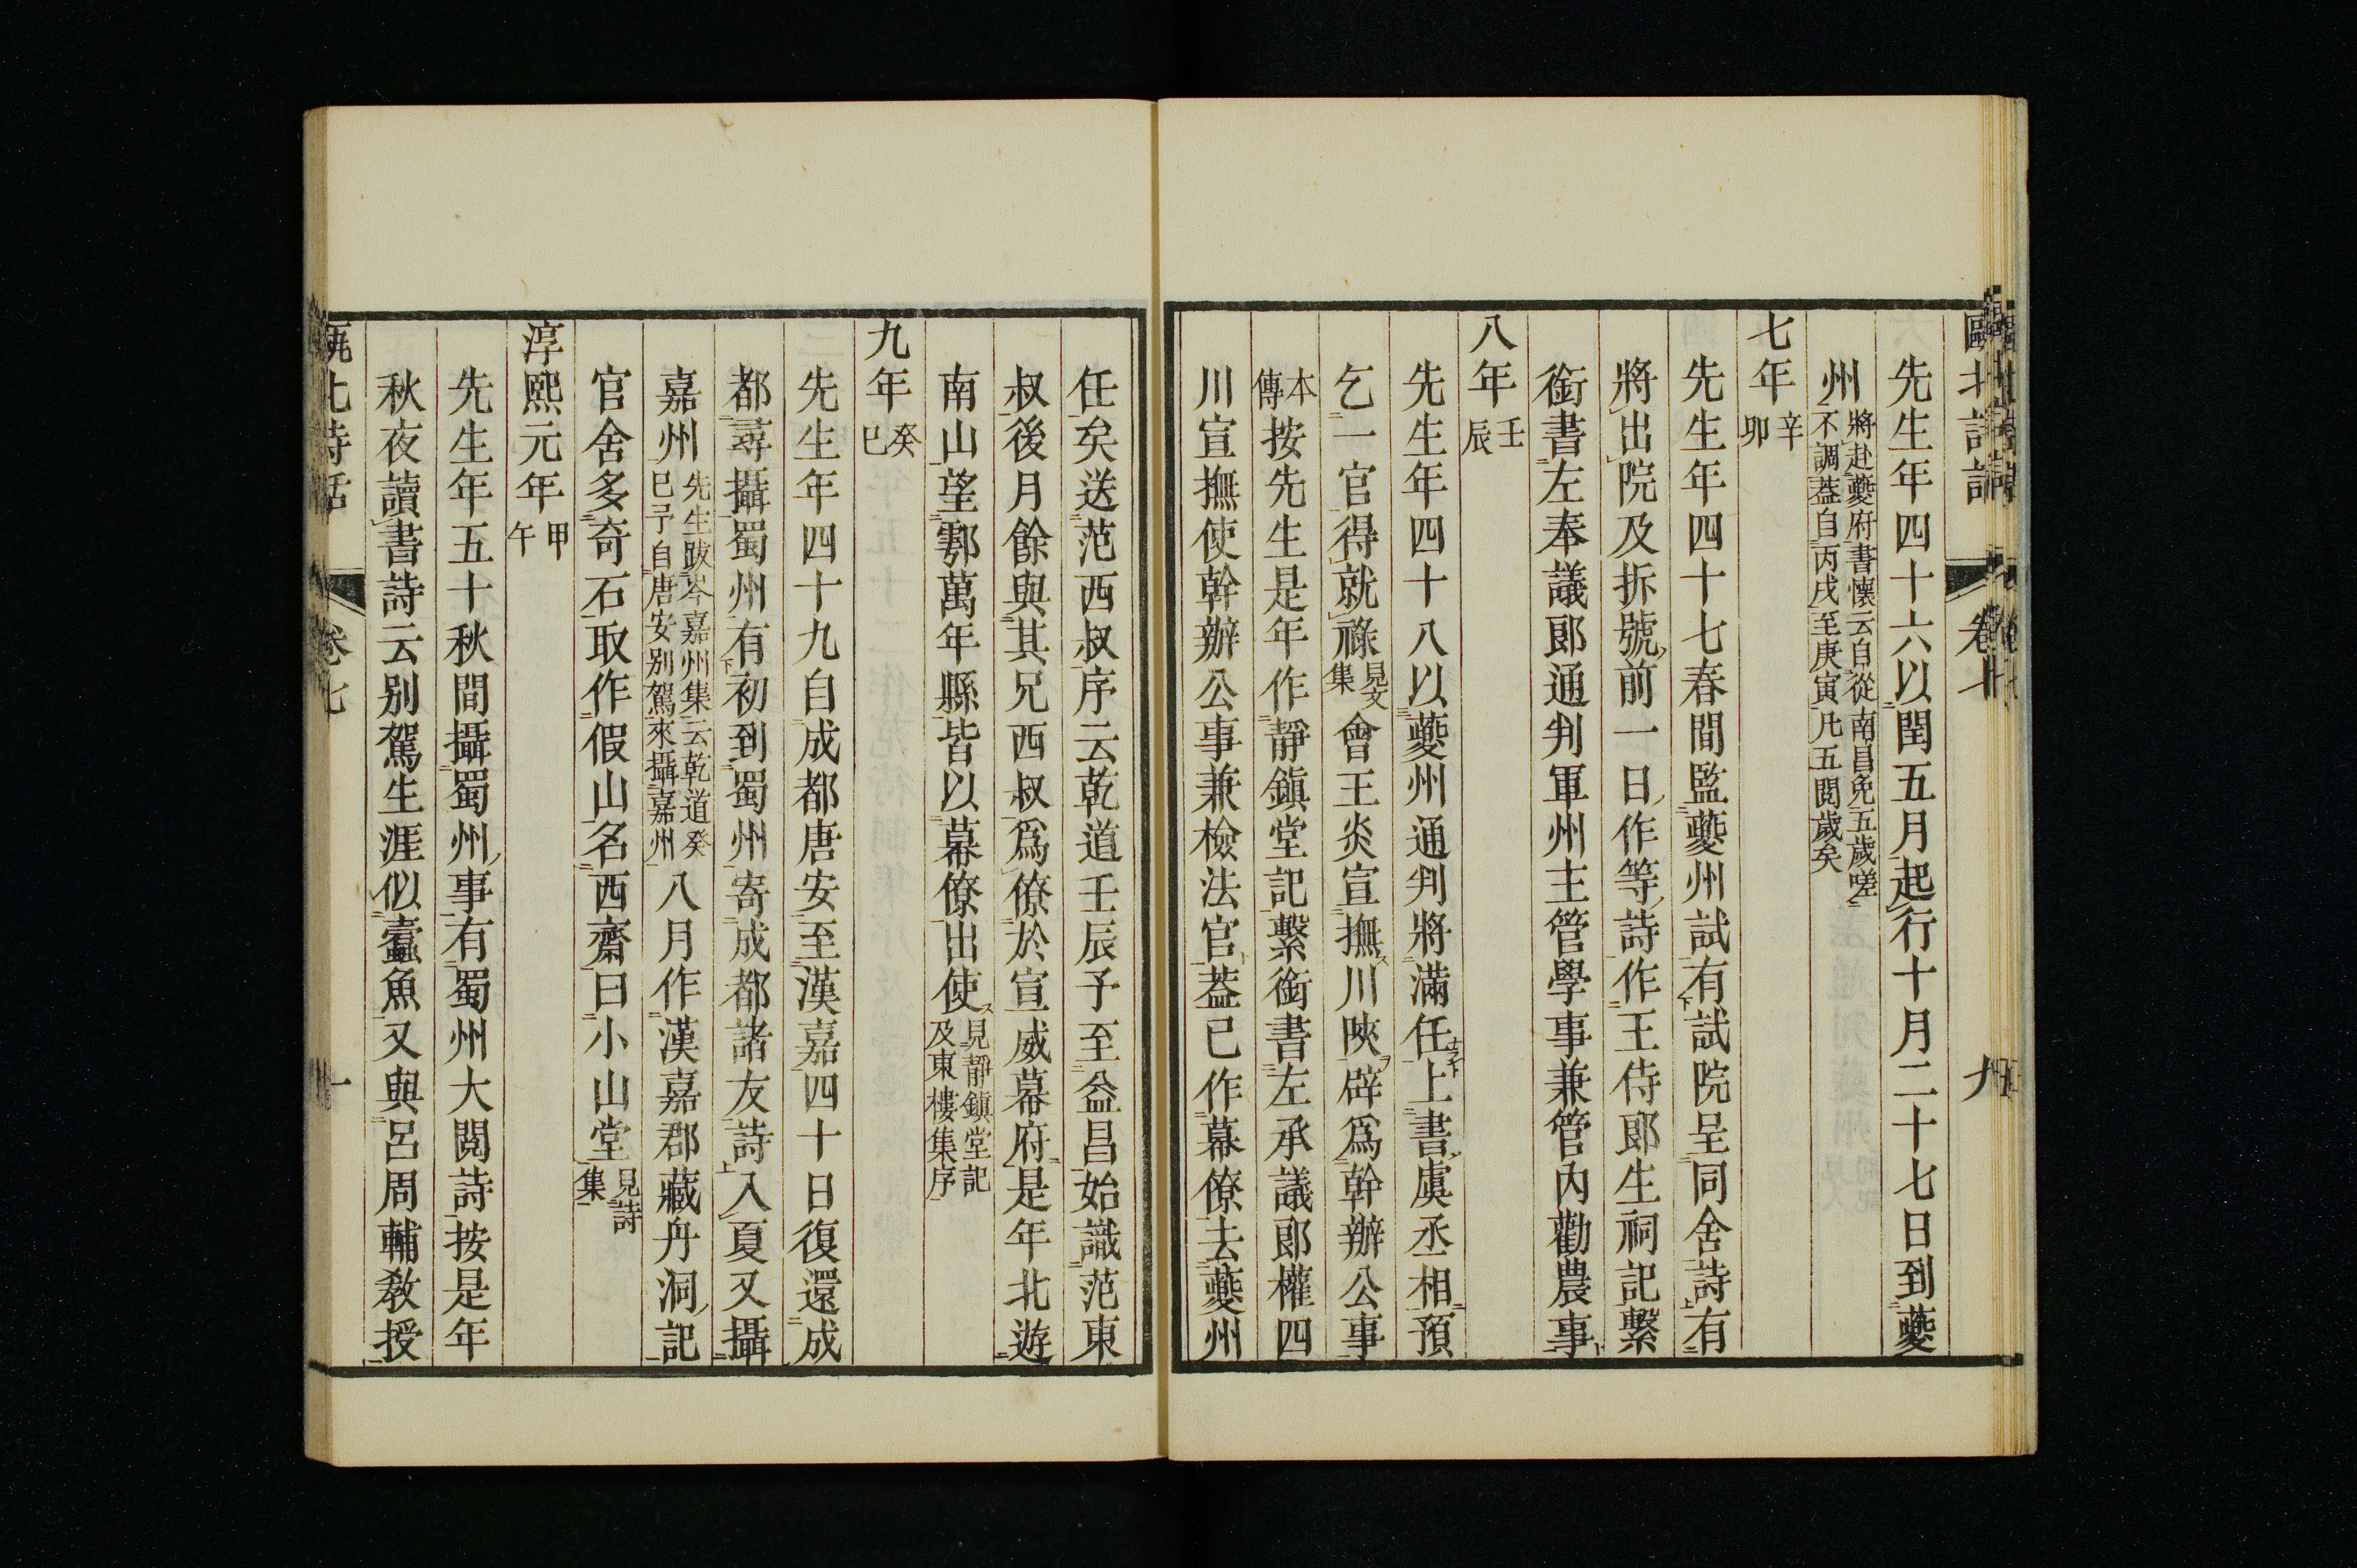 先生年四十六以閏五月起行十月二十七日到夔
州將赴夔府書懷云自從南昌免五歲嗟不調葢自丙戌至庚寅凡五閱歲矣
七年辛卯
先生年四十七春間監夔州試有試院呈同舍詩有
將出院及拆號前一日作等詩作王侍郎生祠記繫
銜書左奉議郎通判軍州主管學事兼管內勸農事
八年壬辰
先生年四十八以夔州通判將滿任上書虞丞相預
乞一官得就祿見文集會王炎宣撫川陝辟爲幹辦公事
本傳按先生是年作靜鎮堂記繫銜書左承議郎權四
川宣撫使幹辦公事兼檢法官葢已作幕僚去夔州
任矣送范西叔序云乾道壬辰予至益昌始識范東
叔後月餘與其兄西叔爲僚於宣威幕府是年北遊
南山望鄠萬年縣皆以幕僚出使見靜鎮堂記及東樓集序
九年癸巳
先生年四十九自成都唐安至漢嘉四十日復還成
都尋攝蜀州有初到蜀州寄成都諸友詩入夏又攝
嘉州先生跋岑嘉州集云乾道癸巳予自唐安別駕來攝嘉州八月作漢嘉郡藏丹洞記
官舍多奇石取作假山名西齋曰小山堂見詩集
淳熙元年甲午
先生年五十秋間攝蜀州事有蜀州大閱詩按是年
秋夜讀書詩云別駕生涯似蠹魚又與呂周輔教授
甌北詩話 卷七